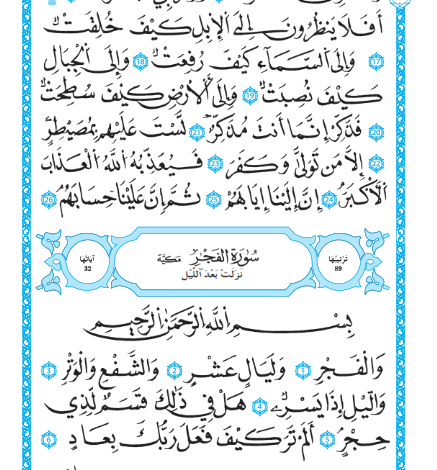 أَفَلَا يَنظُرُونَ إِلَى ٱلْإِبِلِ كَيْفَ خُلِقَتْ
17 وَإِلَى ٱلسَّمَآءِ كَيْفَ رُفِعَتْ 18 وَإِلَى ٱلْجِبَالِ
كَيْفَ نُصِبَتْ 19 وَإِلَى ٱلْأَرْضِ كَيْفَ سُطِحَتْ
20 فَذَكِّرْ إِنَّمَا أَنتَ مُذَكِّرٌ 21 لَّسْتَ عَلَيْهِم بِمُصَيْطِرٍ
22 إِلَّا مَن تَوَلَّىٰ وَكَفَرَ 23 فَيُعَذِّبُهُ ٱللَّهُ ٱلْعَذَابَ
ٱلْأَكْبَرَ 24 إِنَّ إِلَيْنَا إِيَابَهُمْ 25 ثُمَّ إِنَّ عَلَيْنَا حِسَابَهُمْ 26
تَرْتِيبُهَا 89 سُورَةُ الْفَجْرِ مَكِّيَّة آيَاتُهَا 32
نَزَلَتْ بَعْدَ اللَّيْل
بِسْمِ ٱللَّهِ ٱلرَّحْمَٰنِ ٱلرَّحِيمِ
وَٱلْفَجْرِ 1 وَلَيَالٍ عَشْرٍ 2 وَٱلشَّفْعِ وَٱلْوَتْرِ 3
وَٱلَّيْلِ إِذَا يَسْرِۦ 4 هَلْ فِي ذَٰلِكَ قَسَمٌ لِّذِي
حِجْرٍ 5 أَلَمْ تَرَ كَيْفَ فَعَلَ رَبُّكَ بِعَادٍ 6